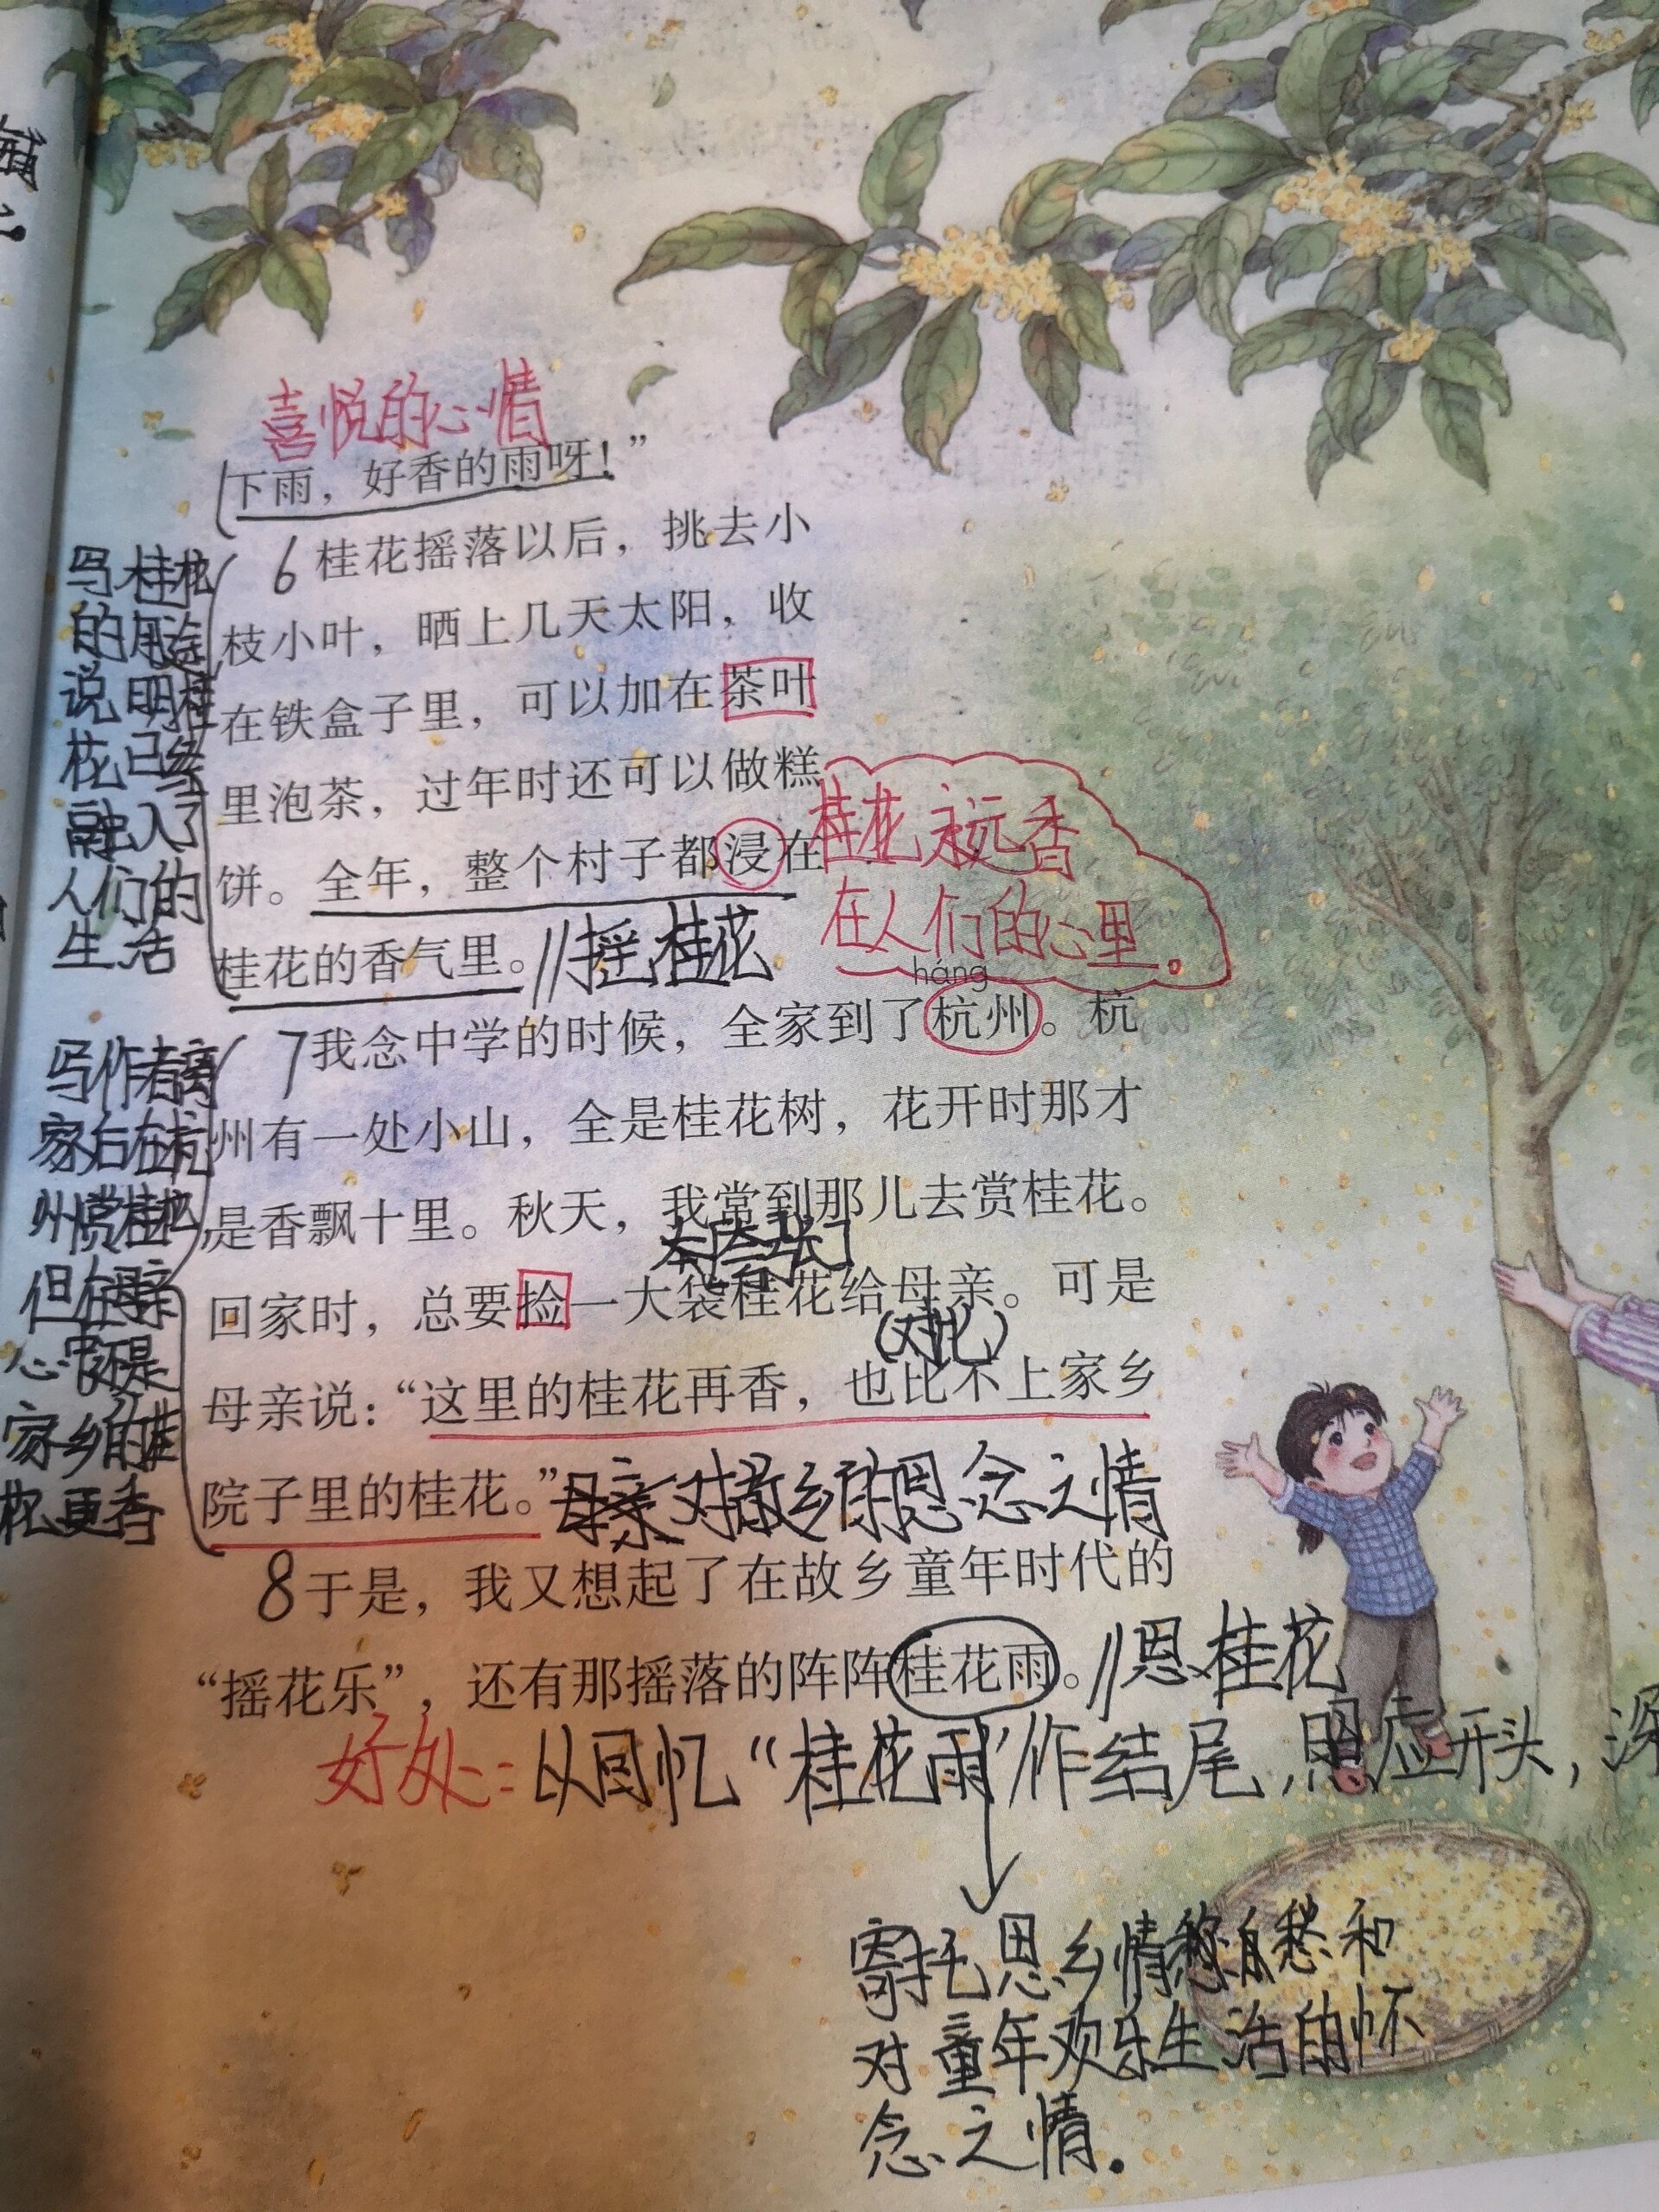 喜悦的心情
下雨，好香的雨呀！”
6 桂花摇落以后，挑去小
枝小叶，晒上几天太阳，收
在铁盒子里，可以加在茶叶
里泡茶，过年时还可以做糕
饼。全年，整个村子都浸在
桂花的香气里。//摇桂花
写桂花
的用途
说明桂
花已经
融入了
人们的
生活
桂花永远香
在人们的心里。
háng
7我念中学的时候，全家到了杭州。杭
州有一处小山，全是桂花树，花开时那才
是香飘十里。秋天，我常到那儿去赏桂花。
回家时，总要捡一大袋桂花给母亲。可是
(对比)
母亲说：“这里的桂花再香，也比不上家乡
院子里的桂花。”母亲对故乡的思念之情
写作者离
家后在杭
州赏桂花，
但在母亲
心中还是
家乡的桂
花更香
8于是，我又想起了在故乡童年时代的
“摇花乐”，还有那摇落的阵阵桂花雨。//思桂花
好处：以回忆“桂花雨”作结尾，照应开头，深
寄托思乡情 和
对童年欢乐生活的怀
念之情.